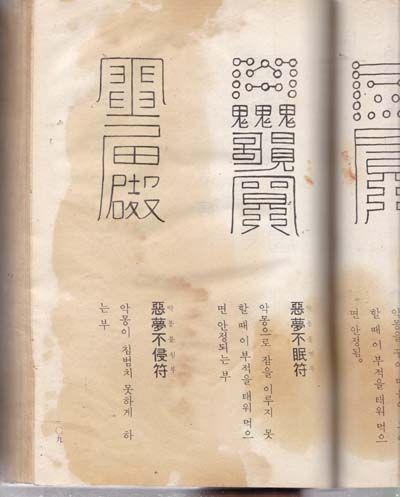 악몽을
할 때 이 부적을 태워 먹으
면 안정됨.
鬼鬼鬼
惡夢不眠符
악몽불면부
악몽으로 잠을 이루지 못
할 때 이 부적을 태워 먹으
면 안정되는 부
惡夢不侵符
악몽불침부
악몽이 침범치 못하게 하
는 부
一〇九